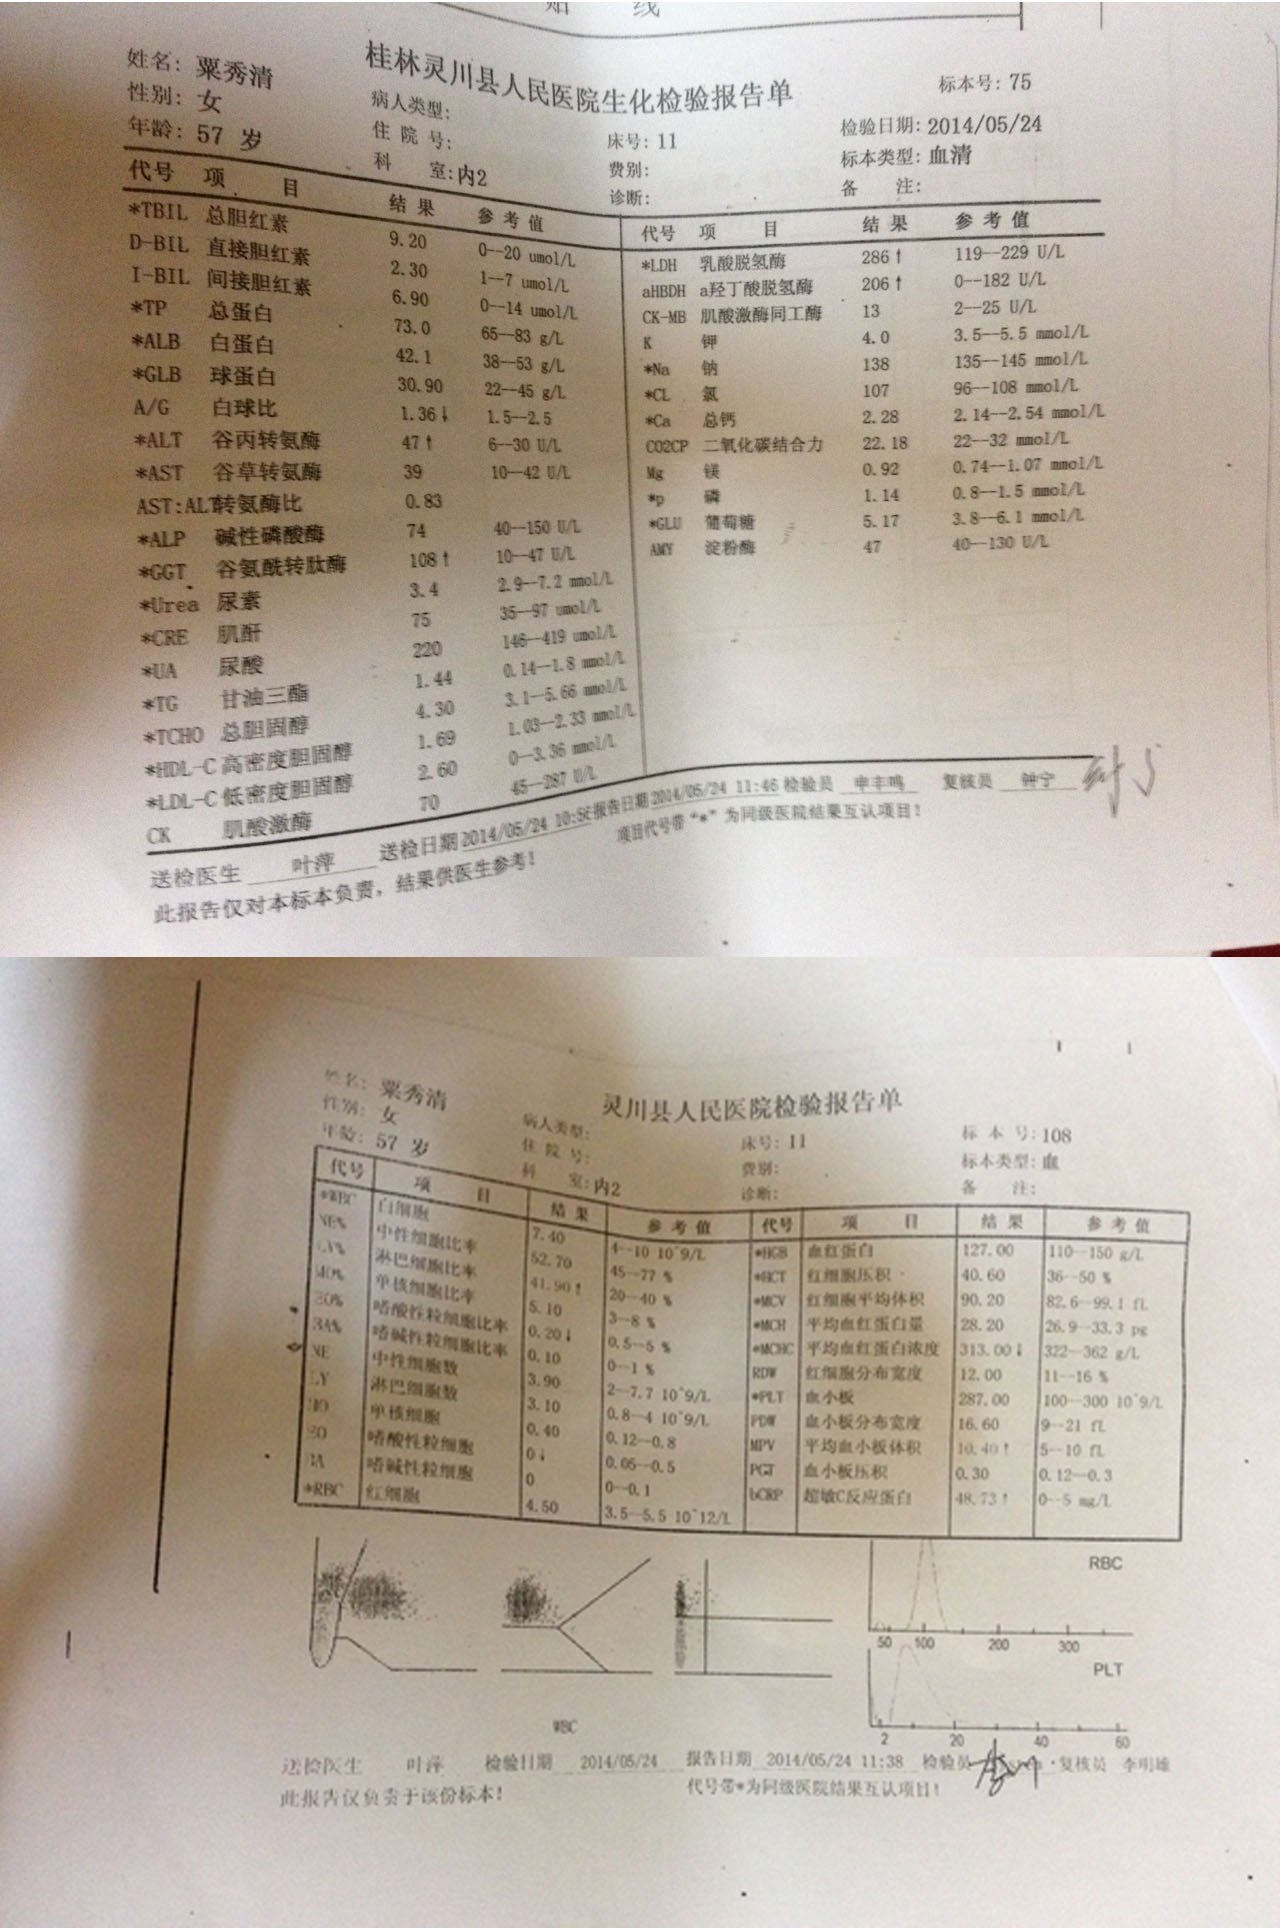 贴 线
桂林灵川县人民医院生化检验报告单
姓名: 粟秀清
性别: 女
年龄: 57 岁
病人类型:
住 院 号:
科 室:内2
床号: 11
费别:
诊断:
标本号: 75
检验日期: 2014/05/24
标本类型: 血清
备 注:
代号 项 目 结 果 参 考 值
*TBIL 总胆红素 9.20 0--20 umol/L
D-BIL 直接胆红素 2.30 1--7 umol/L
I-BIL 间接胆红素 6.90 0--14 umol/L
*TP 总蛋白 73.0 65--83 g/L
*ALB 白蛋白 42.1 38--53 g/L
*GLB 球蛋白 30.90 22--45 g/L
A/G 白球比 1.36↓ 1.5--2.5
*ALT 谷丙转氨酶 47↑ 6--30 U/L
*AST 谷草转氨酶 39 10--42 U/L
AST:ALT转氨酶比 0.83
*ALP 碱性磷酸酶 74 40--150 U/L
*GGT 谷氨酰转肽酶 108↑ 10--47 U/L
*Urea 尿素 3.4 2.9--7.2 mmol/L
*CRE 肌酐 75 35--97 umol/L
*UA 尿酸 220 146--419 umol/L
*TG 甘油三酯 1.44 0.14--1.8 mmol/L
*TCHO 总胆固醇 4.30 3.1--5.66 mmol/L
*HDL-C 高密度胆固醇 1.69 1.03--2.33 mmol/L
*LDL-C 低密度胆固醇 2.60 0--3.36 mmol/L
CK 肌酸激酶 70 45--287 U/L
代号 项 目 结 果 参 考 值
*LDH 乳酸脱氢酶 286↑ 119--229 U/L
aHBDH a羟丁酸脱氢酶 206↑ 0--182 U/L
CK-MB 肌酸激酶同工酶 13 2--25 U/L
K 钾 4.0 3.5--5.5 mmol/L
*Na 钠 138 135--145 mmol/L
*CL 氯 107 96--108 mmol/L
*Ca 总钙 2.28 2.14--2.54 mmol/L
CO2CP 二氧化碳结合力 22.18 22--32 mmol/L
Mg 镁 0.92 0.74--1.07 mmol/L
*p 磷 1.14 0.8--1.5 mmol/L
*GLU 葡萄糖 5.17 3.8--6.1 mmol/L
AMY 淀粉酶 47 40--130 U/L
送检医生 叶萍 送检日期 2014/05/24 10:56 报告日期 2014/05/24 11:46 检验员 申丰鸣 复核员 钟宁
此报告仅对本标本负责，结果供医生参考！ 项目代号带“*”为同级医院结果互认项目！
灵川县人民医院检验报告单
姓名: 粟秀清
性别: 女
年龄: 57 岁
病人类型:
住 院 号:
科 室:内2
床号: 11
费别:
诊断:
标 本 号:108
标本类型:血
备 注:
代号 项 目 结 果 参 考 值
*WBC 白细胞 7.40 4--10 10^9/L
NE% 中性细胞比率 52.70 45--77 %
LY% 淋巴细胞比率 41.90↑ 20--40 %
MO% 单核细胞比率 5.10 3--8 %
EO% 嗜酸性粒细胞比率 0.20↓ 0.5--5 %
BA% 嗜碱性粒细胞比率 0.10 0--1 %
NE 中性细胞数 3.90 2--7.7 10^9/L
LY 淋巴细胞数 3.10 0.8--4 10^9/L
MO 单核细胞 0.40 0.12--0.8
EO 嗜酸性粒细胞 0↓ 0.05--0.5
BA 嗜碱性粒细胞 0 0--0.1
*RBC 红细胞 4.50 3.5--5.5 10^12/L
代号 项 目 结 果 参 考 值
*HGB 血红蛋白 127.00 110--150 g/L
*HCT 红细胞压积 40.60 36--50 %
*MCV 红细胞平均体积 90.20 82.6--99.1 fL
*MCH 平均血红蛋白量 28.20 26.9--33.3 pg
*MCHC 平均血红蛋白浓度 313.00↓ 322--362 g/L
RDW 红细胞分布宽度 12.00 11--16 %
*PLT 血小板 287.00 100--300 10^9/L
PDW 血小板分布宽度 16.60 9--21 fL
MPV 平均血小板体积 10.40↑ 5--10 fL
PCT 血小板压积 0.30 0.12--0.3
hCRP 超敏C反应蛋白 48.73↑ 0--5 mg/L
RBC
50 100 200 300
PLT
2 20 40 60
WBC
送检医生 叶萍 检验日期 2014/05/24 报告日期 2014/05/24 11:38 检验员 复核员 李明雄
此报告仅负责于该份标本! 代号带*为同级医院结果互认项目!